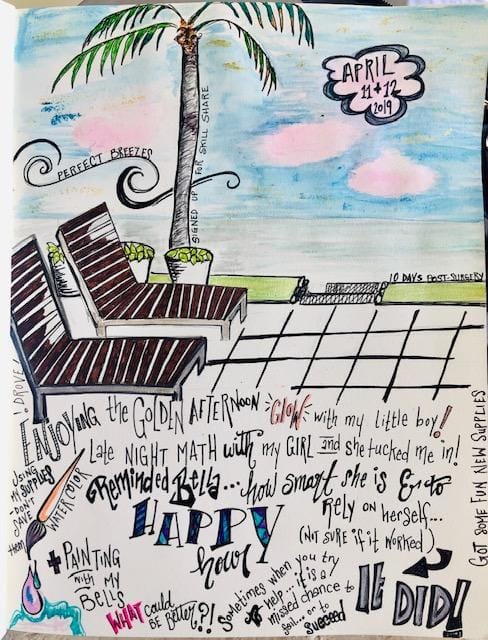 APRIL
11 + 12
2019
PERFECT BREEZES
SIGNED UP FOR SKILL SHARE
10 DAYS POST-SURGERY
I DROVE!
ENJOYING the GOLDEN AFTERNOON GLOW with my little boy!
Late NIGHT MATH with my GIRL and she tucked me in!
Reminded Bella... how smart she is & to
RELY on herself...
(NOT SURE if it WORKED)
IT DID!
USING
MY SUPPLIES
- DON'T
SAVE
them
WATERCOLOR
HAPPY
hour
+ PAINTING
with MY
BELLS
WHAT could
BE BETTER?!
Sometimes when you try
to help... it is a
missed chance to
fail... or to
succeed
GOT SOME FUN NEW SUPPLIES